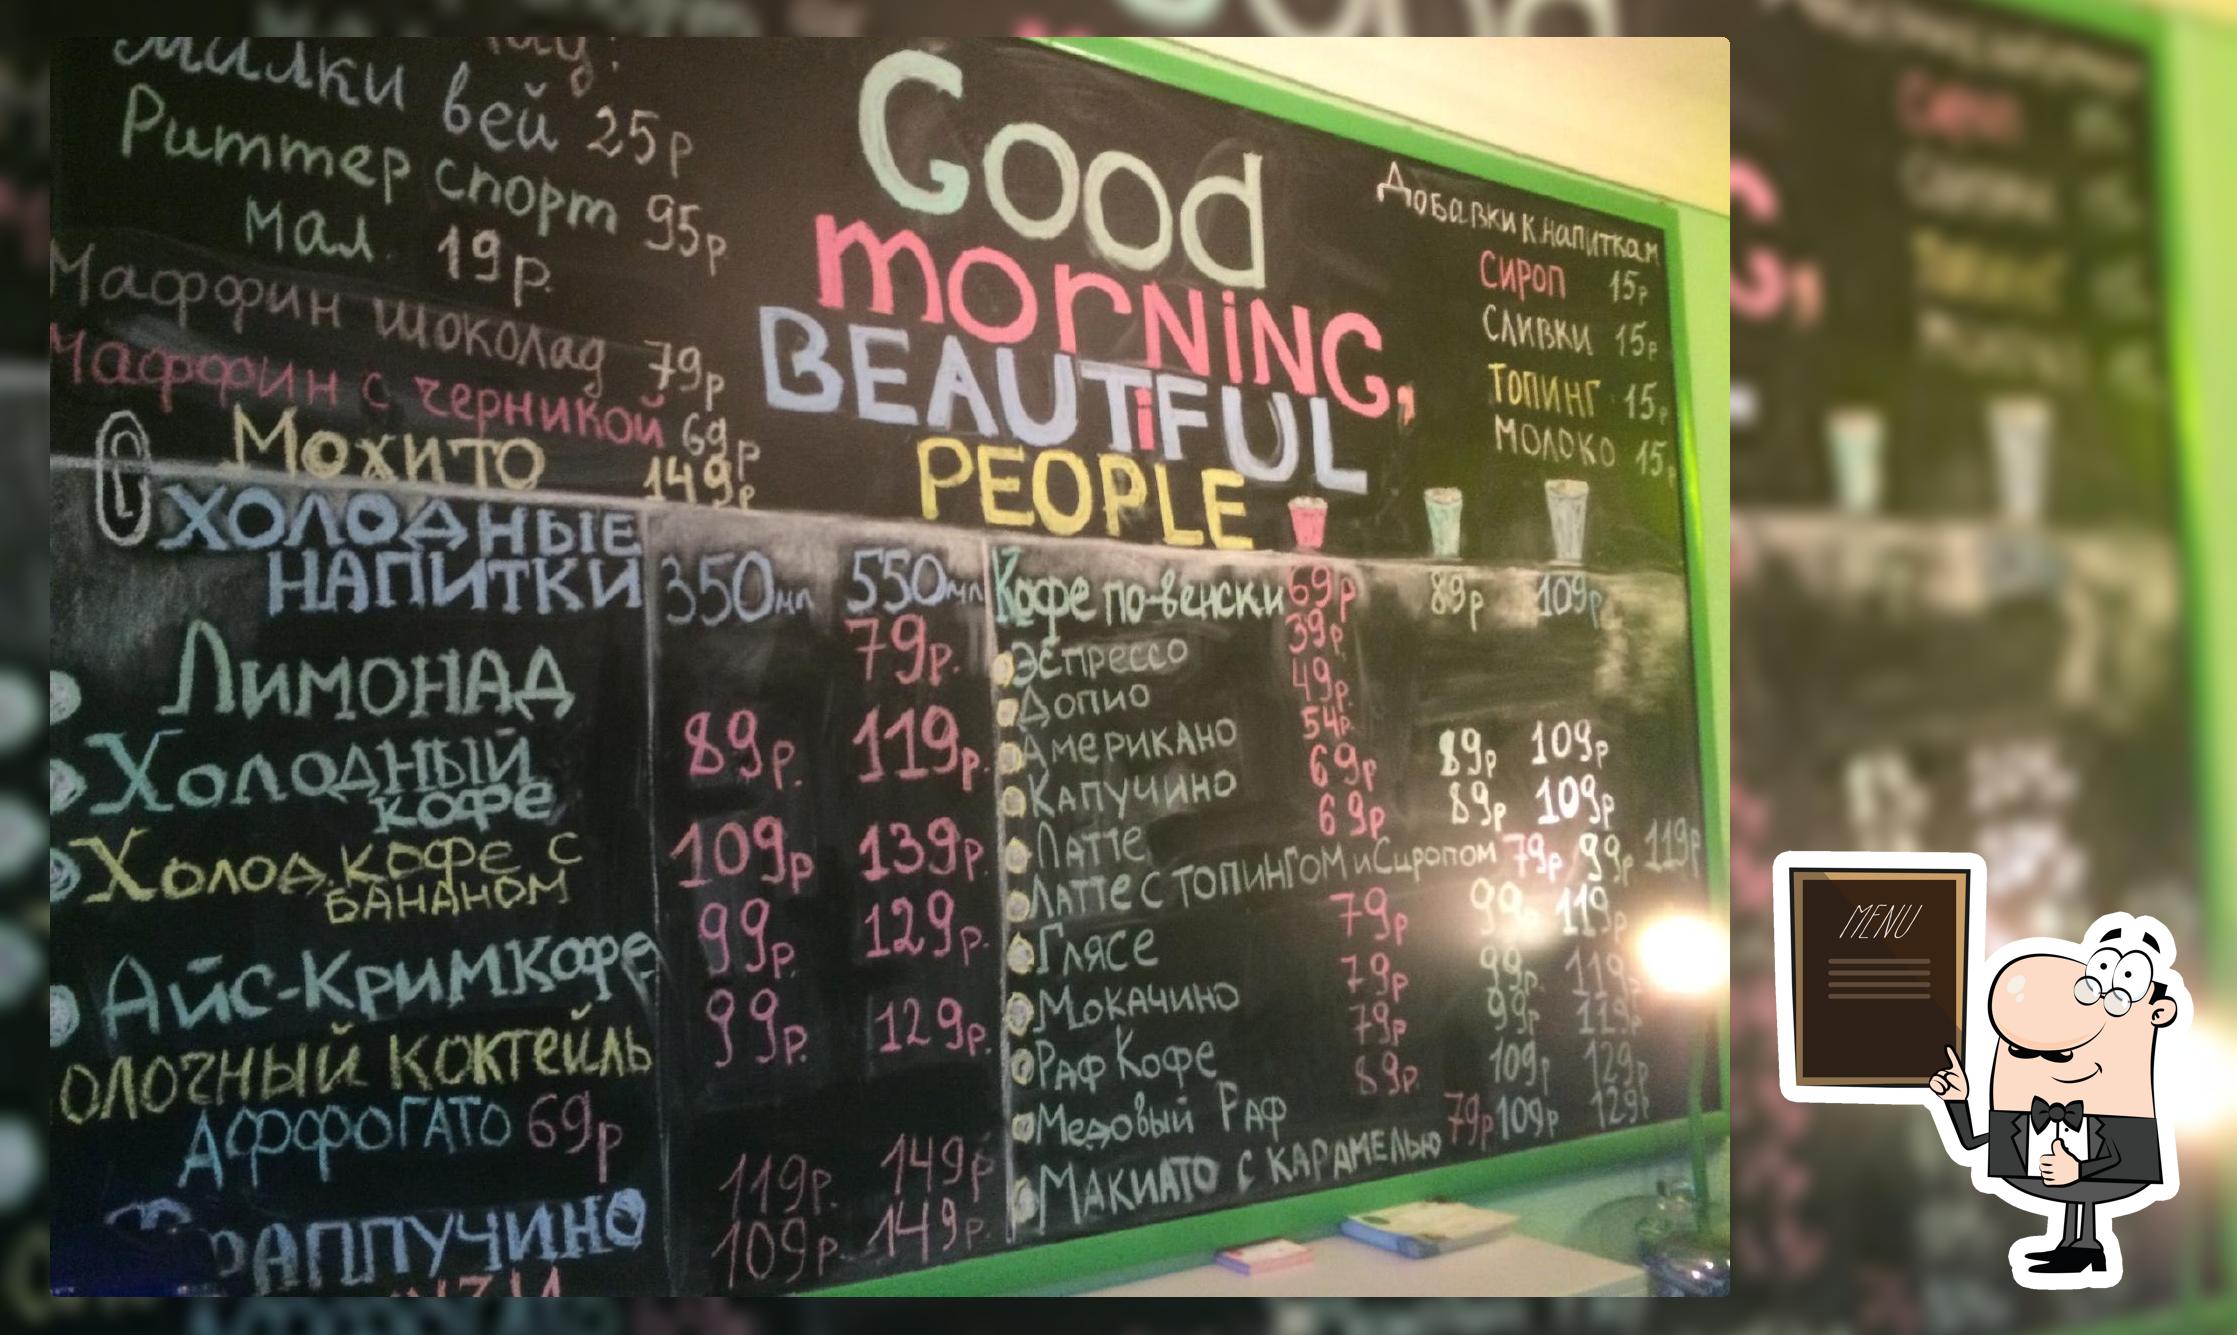 Милки вей 25р
Риттер спорт 95р
мал. 19р.
Маффин шоколад 79р
Маффин с черникой 69р
Мохито 149р
Good
morning,
BEAUTiFUL
PEOPLE
Добавки к напиткам
СИРОП 15р
СЛИВКИ 15р
ТОПИНГ 15р
МОЛОКО 15р
ХОЛОДНЫЕ
НАПИТКИ 350мл 550мл
Лимонад 79р.
Холодный
кофе 89р. 119р.
Холод. кофе с
бананом 109р 139р.
Айс-Кримкофе 99р. 129р.
олочный коктейль 99р. 129р.
Аффогато 69р
раппучино 119р. 149р
109р 149р.
Кофе по-венски 69р 89р 109р
Эспрессо 39р.
Допио 49р.
Американо 54р.
Капучино 69р 89р 109р
Латте 69р 89р 109р
Латте с топингом и сиропом 79р 99р 119р
Глясе 79р 99р 119р
Мокачино 79р 99р. 119р
Раф Кофе 79р 99р 119р
Медовый Раф 89р. 109р 129р
Макиато с карамелью 79р 109р 129р
MENU